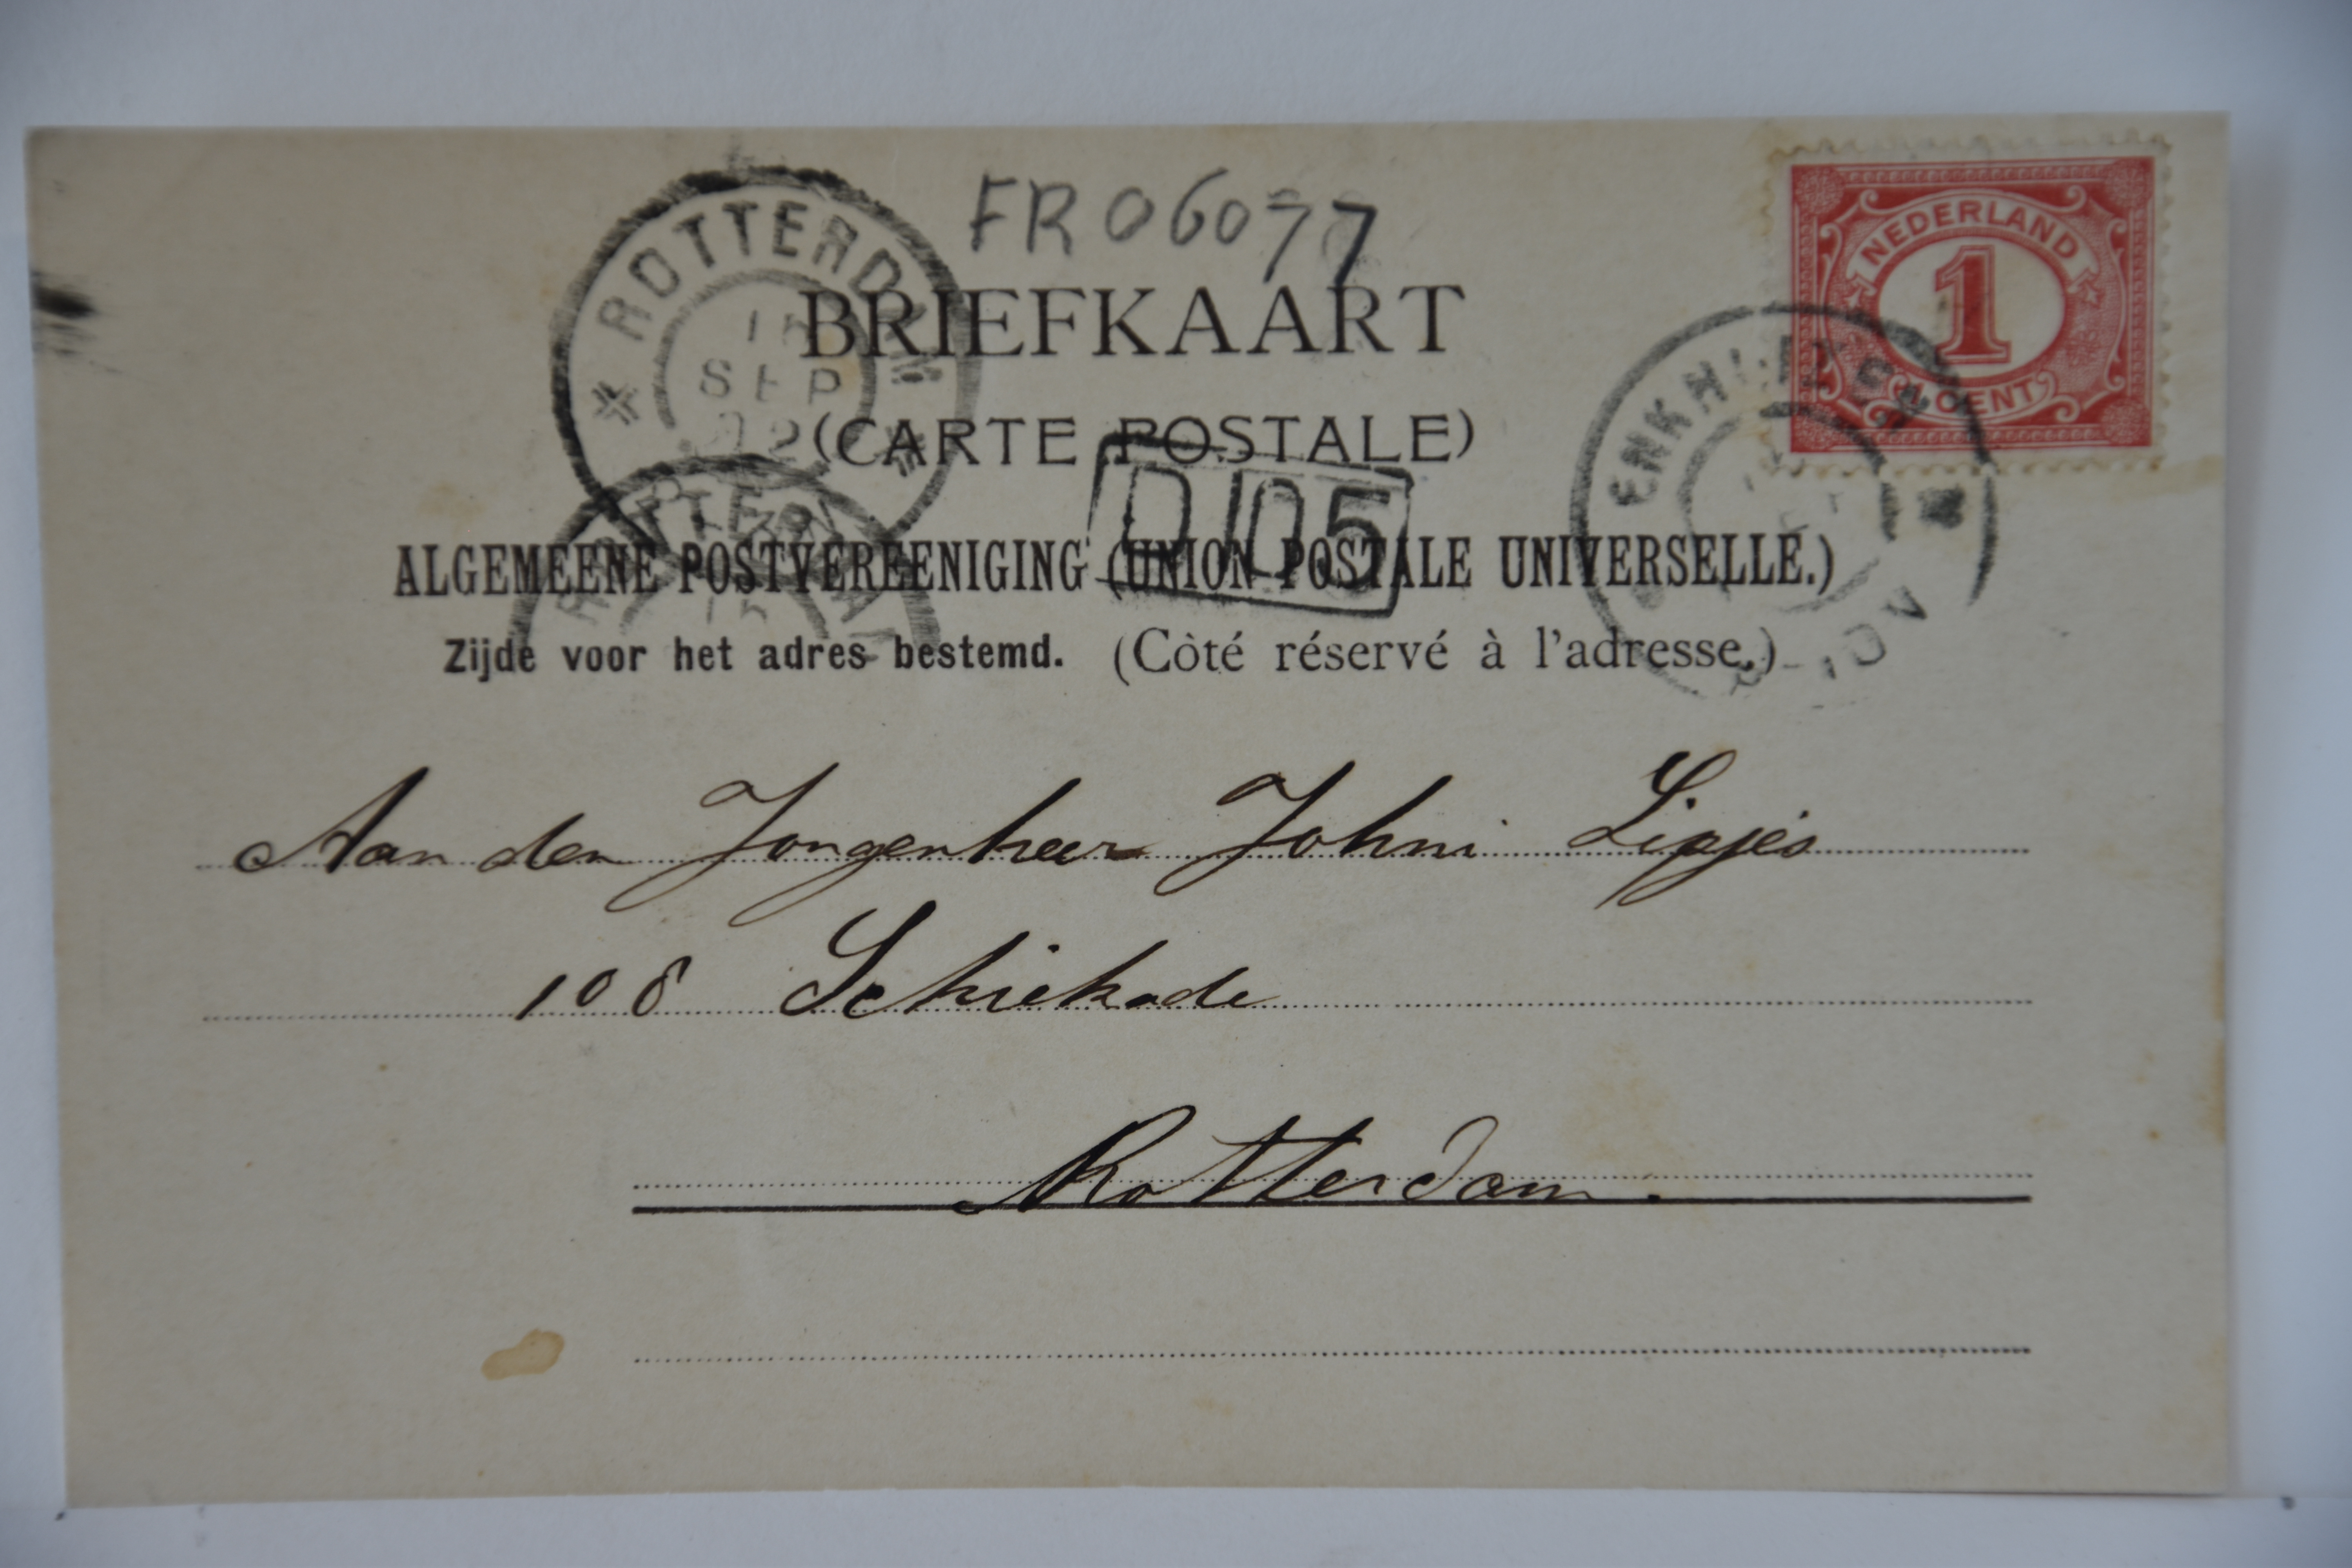 FR 06077
NEDERLAND
1
1 CENT
ROTTERDAM
SEP
BRIEFKAART
(CARTE POSTALE)
ENKHUIZEN
ROTTERDAM
D 05
ALGEMEENE POSTVEREENIGING (UNION POSTALE UNIVERSELLE.)
Zijde voor het adres bestemd. (Còté réservé à l'adresse.)
Aan den Jongenheer Johni Lipjes
108 Schiekade
Rotterdam.